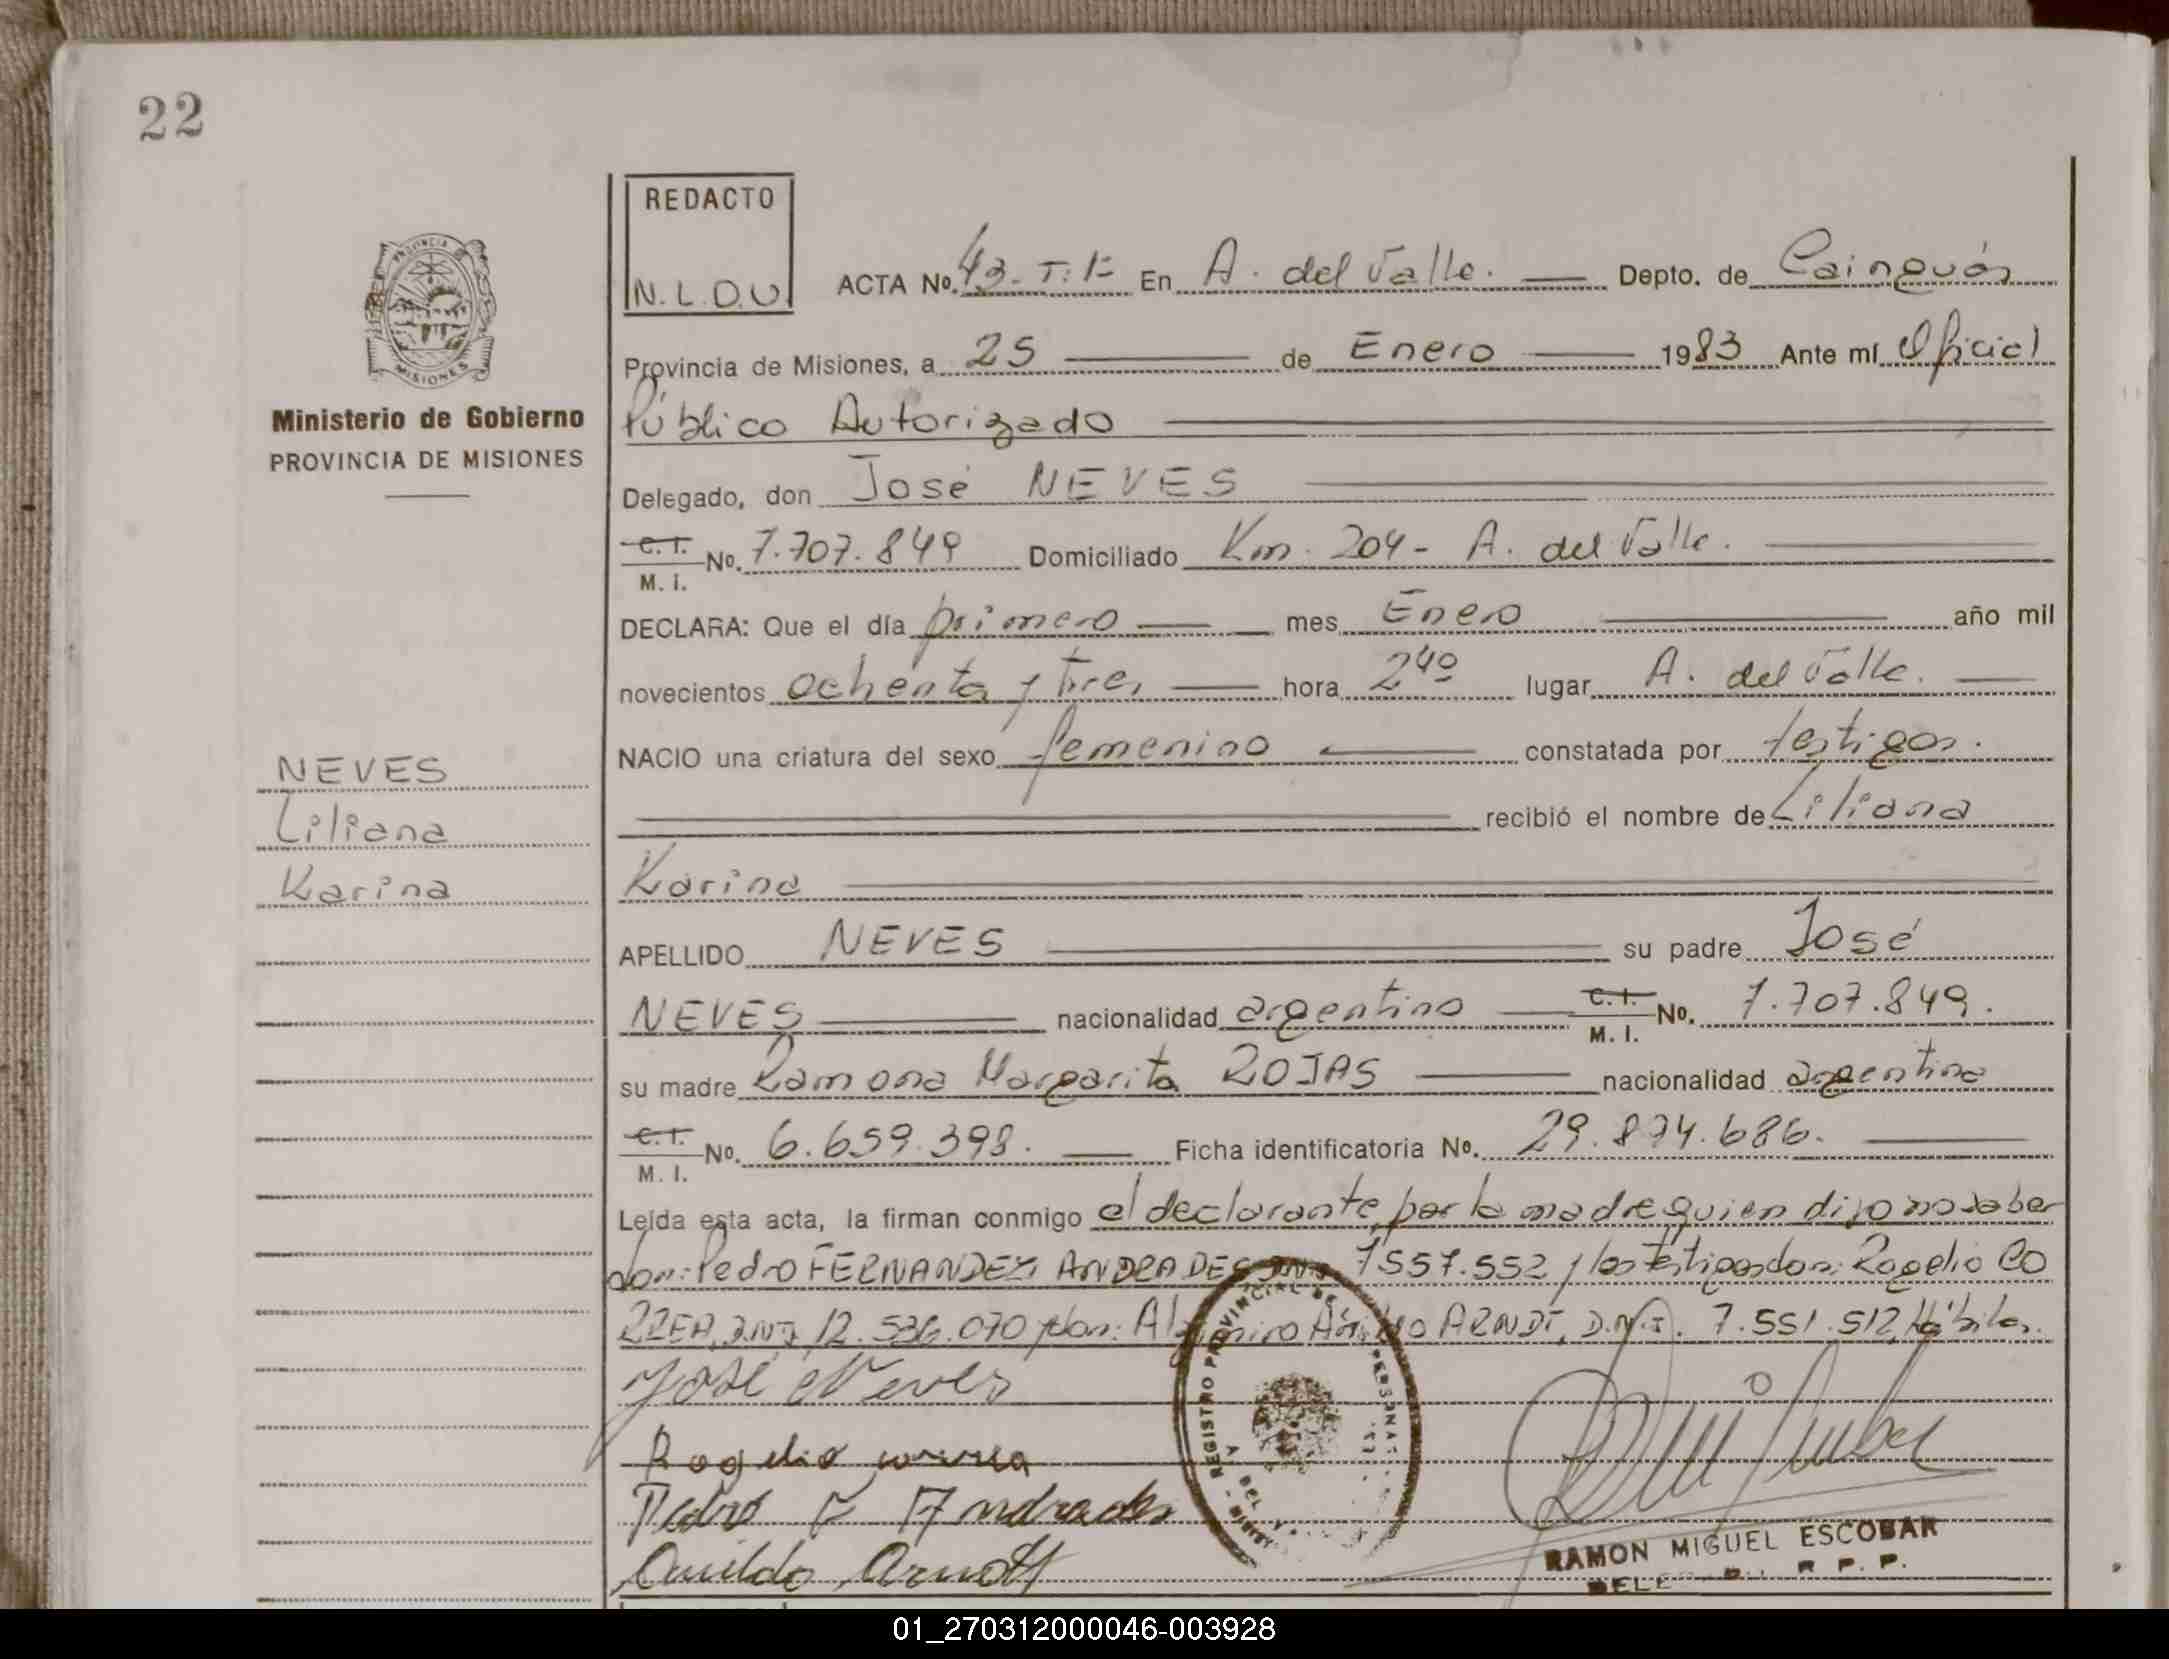 22
REDACTO
N.L.D.U.
ACTA No. 43-T:1º En A. del Valle. Depto. de Cainguás
Provincia de Misiones, a 25 de Enero 1983 Ante mí Oficial
Público Autorizado
Delegado, don José NEVES
C. I. M. I. No. 7.707.849 Domiciliado Km. 204- A. del Valle.
DECLARA: Que el día primero mes Enero año mil
novecientos ochenta y tres hora 24º lugar A. del Valle.
NACIO una criatura del sexo femenino constatada por testigos.
recibió el nombre de Liliana
Karina
APELLIDO NEVES su padre José
NEVES nacionalidad argentino C. I. M. I. No. 7.707.849.
su madre Ramona Margarita ROJAS nacionalidad argentina
C. I. M. I. No. 6.659.398. Ficha identificatoria No. 29.874.686.
Leída esta acta, la firman conmigo el declarante, por la madre quien dijo no saber
don: Pedro FERNANDEZ ANDRADES DNI 7557.552 y los testigos don: Rogelio CO
RREA, D.N.I. 12.536.070 y don: ARNDT, D.N.I. 7.551.512, Hábiles.
José Neves
Rogelio correa
Pedro F Andrades
REGISTRO PROVINCIAL DE
A. DEL V.
RAMON MIGUEL ESCOBAR
R. P. P.
PROVINCIA
MISIONES
Ministerio de Gobierno
PROVINCIA DE MISIONES
NEVES
Liliana
Karina
01_270312000046-003928